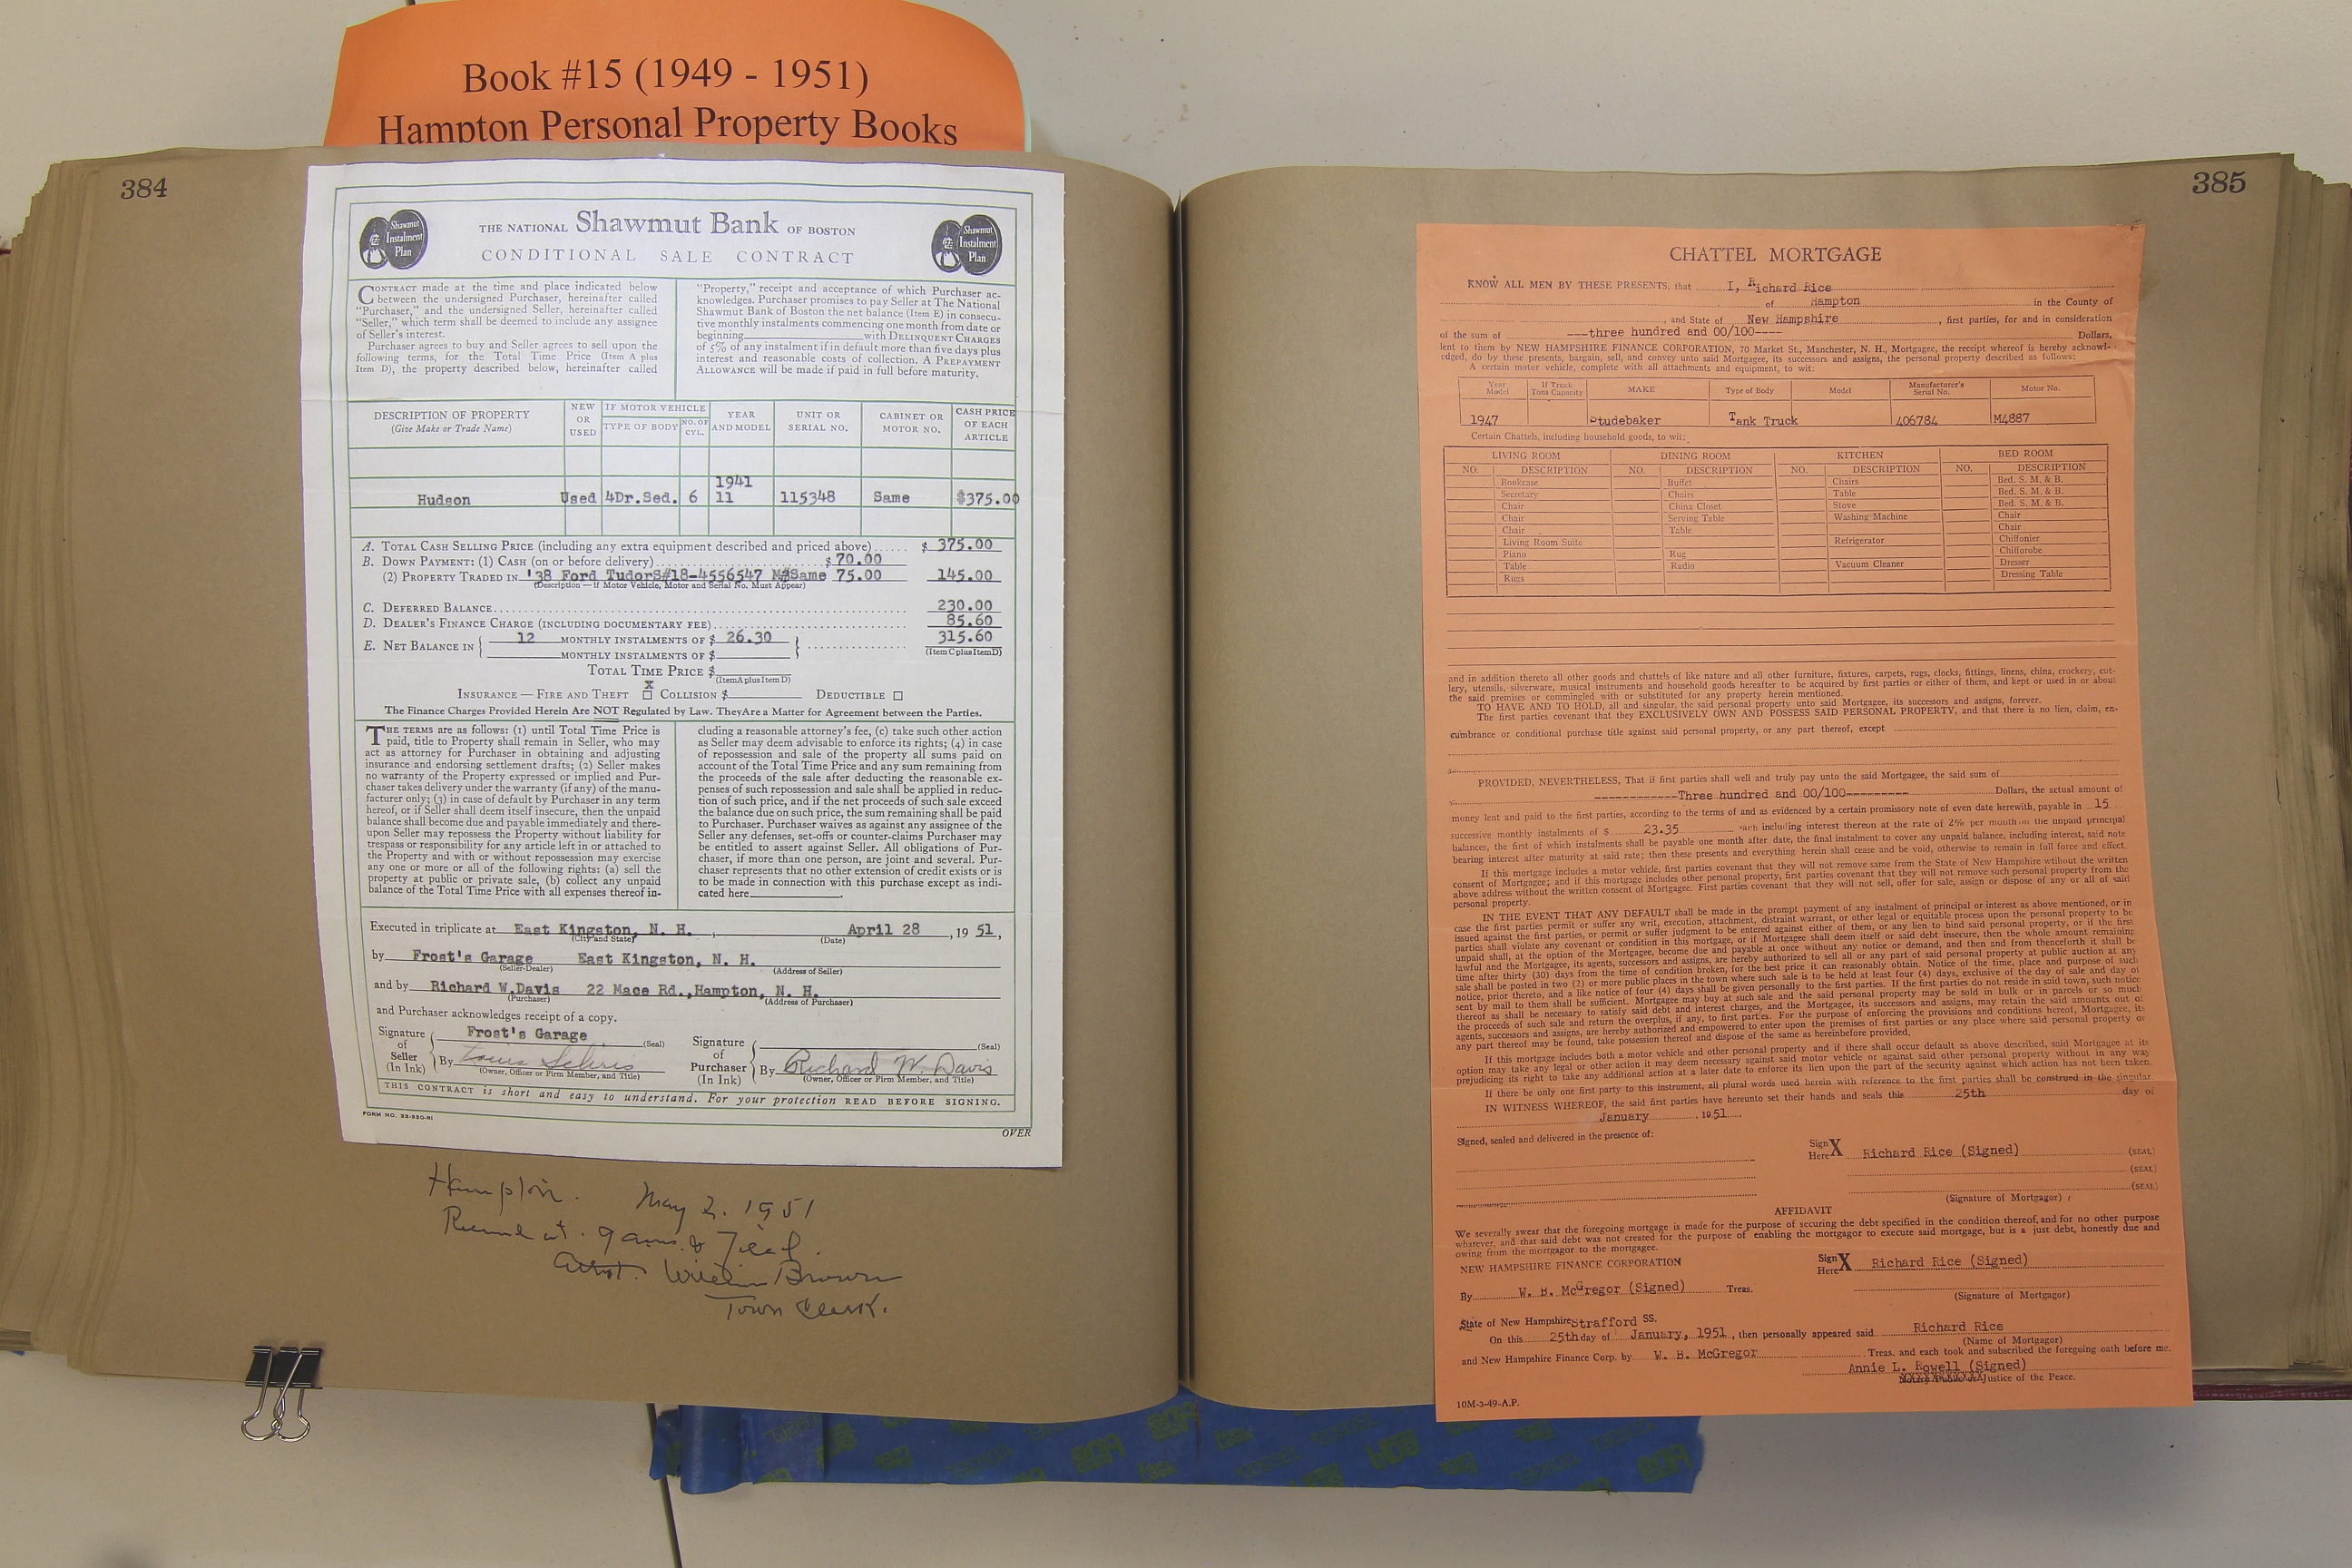 Book #15 (1949 - 1951)
Hampton Personal Property Books
384
Shawmut
Instalment
Plan
THE NATIONAL Shawmut Bank OF BOSTON
CONDITIONAL SALE CONTRACT
Shawmut
Instalment
Plan
CONTRACT made at the time and place indicated below
between the undersigned Purchaser, hereinafter called
"Purchaser," and the undersigned Seller, hereinafter called
"Seller," which term shall be deemed to include any assignee
of Seller's interest.
Purchaser agrees to buy and Seller agrees to sell upon the
following terms, for the Total Time Price (Item A plus
Item D), the property described below, hereinafter called
"Property," receipt and acceptance of which Purchaser ac-
knowledges. Purchaser promises to pay Seller at The National
Shawmut Bank of Boston the net balance (Item E) in consecu-
tive monthly instalments commencing one month from date or
beginning with DELINQUENT CHARGES
of 5% of any instalment if in default more than five days plus
interest and reasonable costs of collection. A PREPAYMENT
ALLOWANCE will be made if paid in full before maturity.
DESCRIPTION OF PROPERTY
(Give Make or Trade Name)
NEW
OR
USED
IF MOTOR VEHICLE
TYPE OF BODY
NO. OF
CYL.
YEAR
AND MODEL
UNIT OR
SERIAL NO.
CABINET OR
MOTOR NO.
CASH PRICE
OF EACH
ARTICLE
1941
Hudson Used 4Dr.Sed. 6 11 115348 Same $375.00
A. TOTAL CASH SELLING PRICE (including any extra equipment described and priced above)...... $ 375.00
B. DOWN PAYMENT: (1) CASH (on or before delivery) $ 70.00
(2) PROPERTY TRADED IN '38 Ford TudorS#18-4556547 M#Same 75.00 145.00
(Description—if Motor Vehicle, Motor and Serial No. Must Appear)
C. DEFERRED BALANCE 230.00
D. DEALER'S FINANCE CHARGE (INCLUDING DOCUMENTARY FEE) 85.60
E. NET BALANCE IN { 12 MONTHLY INSTALMENTS OF $ 26.30 } 315.60
MONTHLY INSTALMENTS OF $ (Item C plus Item D)
TOTAL TIME PRICE $
(Item A plus Item D)
X
INSURANCE — FIRE AND THEFT ☐ COLLISION $ DEDUCTIBLE ☐
The Finance Charges Provided Herein Are NOT Regulated by Law. They Are a Matter for Agreement between the Parties.
THE TERMS are as follows: (1) until Total Time Price is
paid, title to Property shall remain in Seller, who may
act as attorney for Purchaser in obtaining and adjusting
insurance and endorsing settlement drafts; (2) Seller makes
no warranty of the Property expressed or implied and Pur-
chaser takes delivery under the warranty (if any) of the manu-
facturer only; (3) in case of default by Purchaser in any term
hereof, or if Seller shall deem itself insecure, then the unpaid
balance shall become due and payable immediately and there-
upon Seller may repossess the Property without liability for
trespass or responsibility for any article left in or attached to
the Property and with or without repossession may exercise
any one or more or all of the following rights: (a) sell the
property at public or private sale, (b) collect any unpaid
balance of the Total Time Price with all expenses thereof in-
cluding a reasonable attorney's fee, (c) take such other action
as Seller may deem advisable to enforce its rights; (4) in case
of repossession and sale of the property all sums paid on
account of the Total Time Price and any sum remaining from
the proceeds of the sale after deducting the reasonable ex-
penses of such repossession and sale shall be applied in reduc-
tion of such price, and if the net proceeds of such sale exceed
the balance due on such price, the sum remaining shall be paid
to Purchaser. Purchaser waives as against any assignee of the
Seller any defenses, set-offs or counter-claims Purchaser may
be entitled to assert against Seller. All obligations of Pur-
chaser, if more than one person, are joint and several. Pur-
chaser represents that no other extension of credit exists or is
to be made in connection with this purchase except as indi-
cated here.
Executed in triplicate at East Kingston, N. H. , April 28 , 19 51,
(City and State) (Date)
by Frost's Garage East Kingston, N. H.
(Seller-Dealer) (Address of Seller)
and by Richard W.Davis 22 Mace Rd.,Hampton, N. H.
(Purchaser) (Address of Purchaser)
and Purchaser acknowledges receipt of a copy.
Signature
of
Seller
(In Ink)
Frost's Garage
(Seal)
By
(Owner, Officer or Firm Member, and Title)
Signature
of
Purchaser
(In Ink)
(Seal)
By Richard W. Davis
(Owner, Officer or Firm Member, and Title)
THIS CONTRACT is short and easy to understand. For your protection READ BEFORE SIGNING.
FORM NO. 33-930-R1
OVER
Hampton. May 2, 1951
Received at 9 a.m. & Filed.
Attest. William Brown
Town Clerk.
385
CHATTEL MORTGAGE
KNOW ALL MEN BY THESE PRESENTS, that I, Richard Rice
of Hampton in the County of
, and State of New Hampshire , first parties, for and in consideration
of the sum of ---three hundred and 00/100---- Dollars,
lent to them by NEW HAMPSHIRE FINANCE CORPORATION, 70 Market St., Manchester, N. H., Mortgagee, the receipt whereof is hereby acknowl-
edged, do by these presents, bargain, sell, and convey unto said Mortgagee, its successors and assigns, the personal property described as follows:
A certain motor vehicle, complete with all attachments and equipment, to wit:
Year
Model
If Truck
Tons Capacity
MAKE
Type of Body
Model
Manufacturer's
Serial No.
Motor No.
1947 Studebaker Tank Truck 406784 M4887
Certain Chattels, including household goods, to wit:
LIVING ROOM DINING ROOM KITCHEN BED ROOM
NO. DESCRIPTION NO. DESCRIPTION NO. DESCRIPTION NO. DESCRIPTION
Bookcase Buffet Chairs Bed. S. M. & B.
Secretary Chairs Table Bed. S. M. & B.
Chair China Closet Stove Bed. S. M. & B.
Chair Serving Table Washing Machine Chair
Chair Table Chair
Living Room Suite Refrigerator Chiffonier
Piano Rug Chifforobe
Table Radio Vacuum Cleaner Dresser
Rugs Dressing Table
and in addition thereto all other goods and chattels of like nature and all other furniture, fixtures, carpets, rugs, clocks, fittings, linens, china, crockery, cut-
lery, utensils, silverware, musical instruments and household goods hereafter to be acquired by first parties or either of them, and kept or used in or about
the said premises or commingled with or substituted for any property herein mentioned.
TO HAVE AND TO HOLD, all and singular, the said personal property unto said Mortgagee, its successors and assigns, forever.
The first parties covenant that they EXCLUSIVELY OWN AND POSSESS SAID PERSONAL PROPERTY, and that there is no lien, claim, en-
cumbrance or conditional purchase title against said personal property, or any part thereof, except
PROVIDED, NEVERTHELESS, That if first parties shall well and truly pay unto the said Mortgagee, the said sum of
------------Three hundred and 00/100--------- Dollars, the actual amount of
money lent and paid to the first parties, according to the terms of and as evidenced by a certain promissory note of even date herewith, payable in 15
successive monthly instalments of $ 23.35 each including interest thereon at the rate of 2% per month on the unpaid principal
balances, the first of which instalments shall be payable one month after date, the final instalment to cover any unpaid balance, including interest, said note
bearing interest after maturity at said rate; then these presents and everything herein shall cease and be void, otherwise to remain in full force and effect.
If this mortgage includes a motor vehicle, first parties covenant that they will not remove same from the State of New Hampshire wtihout the written
consent of Mortgagee; and if this mortgage includes other personal property, first parties covenant that they will not remove such personal property from the
above address without the written consent of Mortgagee. First parties covenant that they will not sell, offer for sale, assign or dispose of any or all of said
personal property.
IN THE EVENT THAT ANY DEFAULT shall be made in the prompt payment of any instalment of principal or interest as above mentioned, or in
case the first parties permit or suffer any writ, execution, attachment, distraint warrant, or other legal or equitable process upon the personal property to be
issued against the first parties, or permit or suffer judgment to be entered against either of them, or any lien to bind said personal property, or if the first
parties shall violate any covenant or condition in this mortgage, or if Mortgagee shall deem itself or said debt insecure, then the whole amount remaining
unpaid shall, at the option of the Mortgagee, become due and payable at once without any notice or demand, and then and from thenceforth it shall be
lawful and the Mortgagee, its agents, successors and assigns, are hereby authorized to sell all or any part of said personal property at public auction at any
time after thirty (30) days from the time of condition broken, for the best price it can reasonably obtain. Notice of the time, place and purpose of such
sale shall be posted in two (2) or more public places in the town where such sale is to be held at least four (4) days, exclusive of the day of sale and day of
notice, prior thereto, and a like notice of four (4) days shall be given personally to the first parties. If the first parties do not reside in said town, such notice
sent by mail to them shall be sufficient. Mortgagee may buy at such sale and the said personal property may be sold in bulk or in parcels or so much
thereof as shall be necessary to satisfy said debt and interest charges, and the Mortgagee, its successors and assigns, may retain the said amounts out of
the proceeds of such sale and return the overplus, if any, to first parties. For the purpose of enforcing the provisions and conditions hereof, Mortgagee, its
agents, successors and assigns, are hereby authorized and empowered to enter upon the premises of first parties or any place where said personal property or
any part thereof may be found, take possession thereof and dispose of the same as hereinbefore provided.
If this mortgage includes both a motor vehicle and other personal property and if there shall occur default as above described, said Mortgagee at its
option may take any legal or other action it may deem necessary against said motor vehicle or against said other personal property without in any way
prejudicing its right to take any additional action at a later date to enforce its lien upon the part of the security against which action has not been taken.
If there be only one first party to this instrument, all plural words used herein with reference to the first parties shall be construed in the singular.
IN WITNESS WHEREOF, the said first parties have hereunto set their hands and seals this 25th day of
January , 1951
Signed, sealed and delivered in the presence of:
Sign
Here X Richard Rice (Signed) (SEAL)
(SEAL)
(SEAL)
(Signature of Mortgagor)
AFFIDAVIT
We severally swear that the foregoing mortgage is made for the purpose of securing the debt specified in the condition thereof, and for no other purpose
whatever, and that said debt was not created for the purpose of enabling the mortgagor to execute said mortgage, but is a just debt, honestly due and
owing from the mortgagor to the mortgagee.
NEW HAMPSHIRE FINANCE CORPORATION
Sign
Here X Richard Rice (Signed)
By W. B. McGregor (Signed) Treas.
(Signature of Mortgagor)
State of New Hampshire Strafford SS.
On this 25th day of January, 1951 , then personally appeared said Richard Rice
(Name of Mortgagor)
and New Hampshire Finance Corp. by W. B. McGregor Treas. and each took and subscribed the foregoing oath before me.
Annie L. Rowell (Signed)
Notary Public or Justice of the Peace.
10M-3-49-A.P.